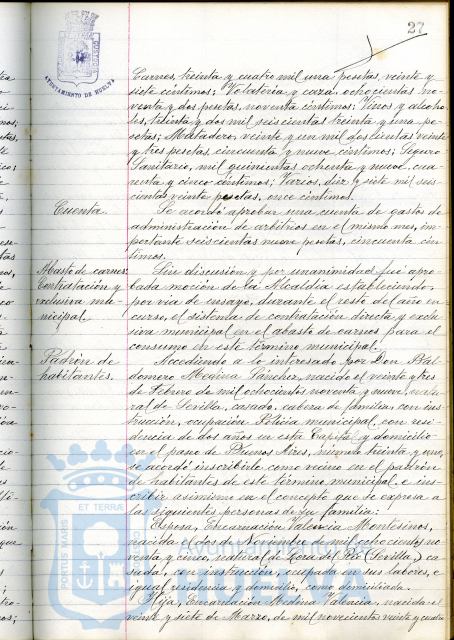 27
AYUNTAMIENTO DE HUELVA
Carnes, treinta y cuatro mil una pesetas, veinte y
siete céntimos; Volatería y caza, ochocientas no-
venta y dos pesetas, noventa céntimos; Vinos y alcoho-
les, treinta y dos mil seiscientas treinta y una pe-
setas; Matadero, veinte y un mil doscientas veinte
y tres pesetas, cincuenta y nueve céntimos; Seguro
Sanitario, mil quinientas ochenta y nueve, cua-
renta y cinco céntimos; Varios, diez y siete mil seis-
cientas veinte pesetas, once céntimos.
Cuenta.
Se acordó aprobar una cuenta de gastos de
administración de arbitrios en el mismo mes, im-
portante seiscientas nueve pesetas, cincuenta cén-
timos.
Abasto de carnes:
Contratación y
exclusiva mu-
nicipal.
Sin discusión y por unanimidad fué apro-
bada moción de la Alcaldía estableciendo,
por vía de ensayo, durante el resto del año en
curso, el sistema de contratación directa y exclu-
siva municipal en el abasto de carnes para el
consumo en este término municipal.
Padrón de
habitantes.
Accediendo a lo interesado por Don Bal-
domero Medina Sánchez, nacido el veinte y tres
de Febrero de mil ochocientos noventa y nueve, natu-
ral de Sevilla, casado, cabeza de familia, con ins-
trucción, ocupación Policía municipal, con resi-
dencia de dos años en esta Capital y domicilio
en el paseo de Buenos Aires, número treinta y uno,
se acordó inscribirle como vecino en el padrón
de habitantes de este término municipal e ins-
cribir asimismo en el concepto que se expresa a
las siguientes personas de su familia:
Esposa, Encarnación Valencia Montesinos,
nacida el dos de Noviembre de mil ochocientos no-
venta y cinco, natural de Lora del Río (Sevilla), ca-
sada, con instrucción, ocupada en sus labores, e
igual residencia y domicilio, como domiciliada.
Hija, Encarnación Medina Valencia, nacida el
veinte y siete de Marzo, de mil novecientos veinte y cuatro
PORTUS MARIS ET TERRA